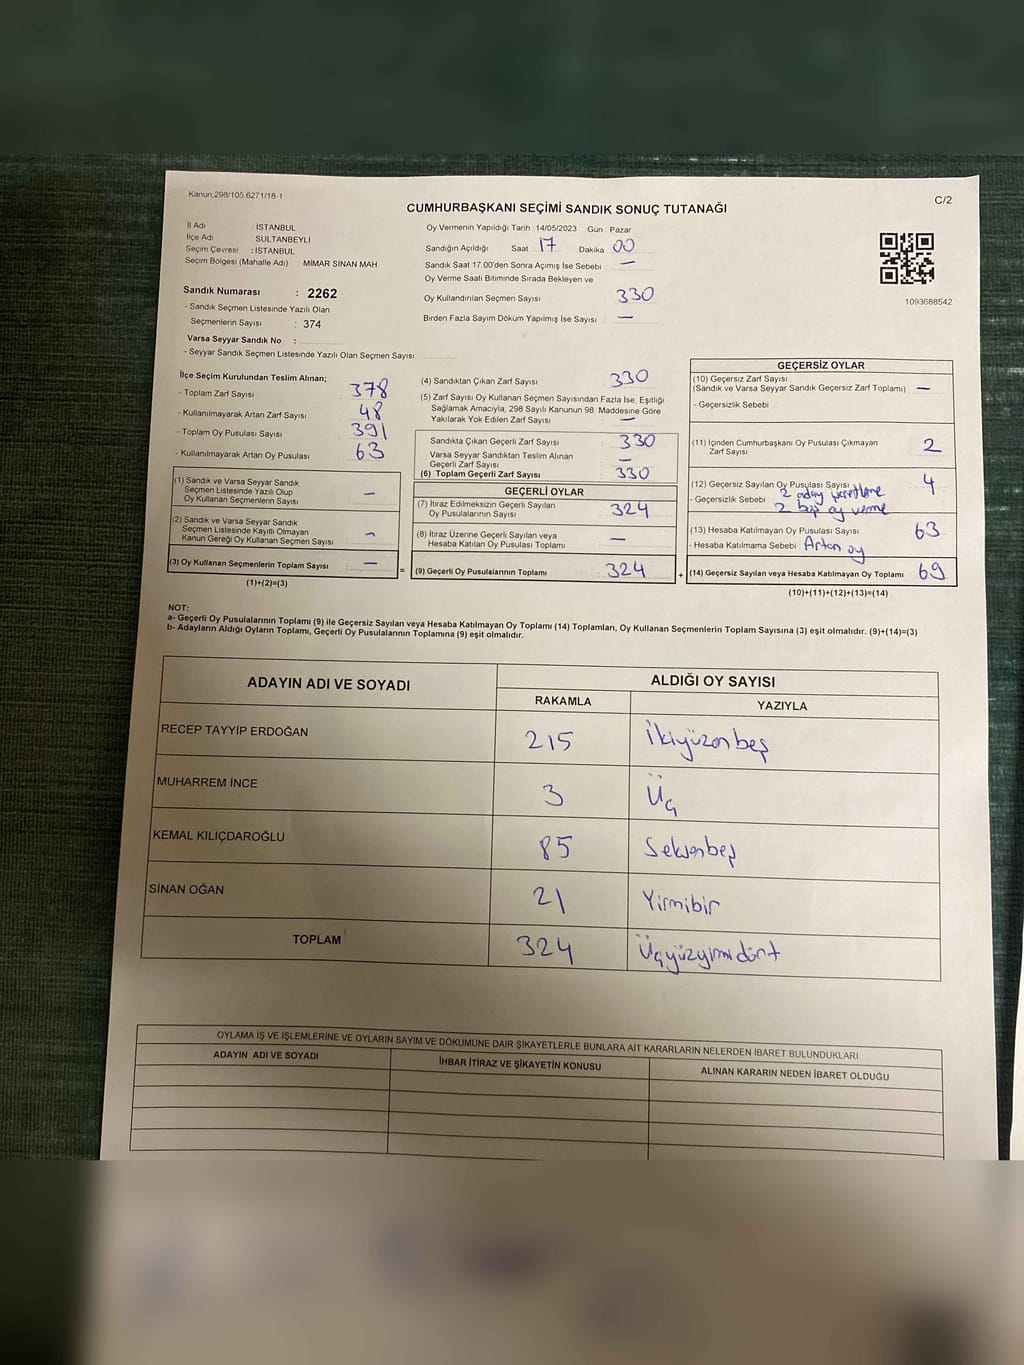 Kanun 298/105 6271/18-1
C/2
CUMHURBAŞKANI SEÇİMİ SANDIK SONUÇ TUTANAĞI
İl Adı : İSTANBUL
İlçe Adı : SULTANBEYLİ
Seçim Çevresi : İSTANBUL
Seçim Bölgesi (Mahalle Adı) : MİMAR SİNAN MAH
Sandık Numarası : 2262
- Sandık Seçmen Listesinde Yazılı Olan
Seçmenlerin Sayısı : 374
Varsa Seyyar Sandık No :
- Seyyar Sandık Seçmen Listesinde Yazılı Olan Seçmen Sayısı:
Oy Vermenin Yapıldığı Tarih 14/05/2023 Gün Pazar
Sandığın Açıldığı Saat 17 Dakika 00
Sandık Saat 17.00'den Sonra Açımış İse Sebebi : —
Oy Verme Saati Bitiminde Sırada Bekleyen ve
Oy Kullandırılan Seçmen Sayısı : 330
Birden Fazla Sayım Döküm Yapılmış İse Sayısı : —
1093688542
İlçe Seçim Kurulundan Teslim Alınan;
- Toplam Zarf Sayısı : 378
- Kullanılmayarak Artan Zarf Sayısı : 48
- Toplam Oy Pusulası Sayısı : 391
- Kullanılmayarak Artan Oy Pusulası : 63
(1) Sandık ve Varsa Seyyar Sandık
Seçmen Listesinde Yazılı Olup
Oy Kullanan Seçmenlerin Sayısı : —
(2) Sandık ve Varsa Seyyar Sandık
Seçmen Listesinde Kayıtlı Olmayan
Kanun Gereği Oy Kullanan Seçmen Sayısı : —
(3) Oy Kullanan Seçmenlerin Toplam Sayısı : —
(1)+(2)=(3)
=
(4) Sandıktan Çıkan Zarf Sayısı : 330
(5) Zarf Sayısı Oy Kullanan Seçmen Sayısından Fazla İse, Eşitliği
Sağlamak Amacıyla, 298 Sayılı Kanunun 98. Maddesine Göre
Yakılarak Yok Edilen Zarf Sayısı : —
Sandıkta Çıkan Geçerli Zarf Sayısı : 330
Varsa Seyyar Sandıktan Teslim Alınan
Geçerli Zarf Sayısı : —
(6) Toplam Geçerli Zarf Sayısı : 330
GEÇERLİ OYLAR
(7) İtiraz Edilmeksizin Geçerli Sayılan
Oy Pusulalarının Sayısı : 324
(8) İtiraz Üzerine Geçerli Sayılan veya
Hesaba Katılan Oy Pusulası Toplamı : —
(9) Geçerli Oy Pusulalarının Toplamı : 324
+
GEÇERSİZ OYLAR
(10) Geçersiz Zarf Sayısı
(Sandık ve Varsa Seyyar Sandık Geçersiz Zarf Toplamı) : —
- Geçersizlik Sebebi :
(11) İçinden Cumhurbaşkanı Oy Pusulası Çıkmayan
Zarf Sayısı : 2
(12) Geçersiz Sayılan Oy Pusulası Sayısı : 4
- Geçersizlik Sebebi : 2 aday işaretleme
2 boş oy verme
(13) Hesaba Katılmayan Oy Pusulası Sayısı : 63
- Hesaba Katılmama Sebebi : Artan oy
(14) Geçersiz Sayılan veya Hesaba Katılmayan Oy Toplamı : 69
(10)+(11)+(12)+(13)=(14)
NOT:
a- Geçerli Oy Pusulalarının Toplamı (9) ile Geçersiz Sayılan veya Hesaba Katılmayan Oy Toplamı (14) Toplamları, Oy Kullanan Seçmenlerin Toplam Sayısına (3) eşit olmalıdır. (9)+(14)=(3)
b- Adayların Aldığı Oyların Toplamı, Geçerli Oy Pusulalarının Toplamına (9) eşit olmalıdır.
ADAYIN ADI VE SOYADI
ALDIĞI OY SAYISI
RAKAMLA YAZIYLA
RECEP TAYYİP ERDOĞAN 215 İkiyüzonbeş
MUHARREM İNCE 3 Üç
KEMAL KILIÇDAROĞLU 85 Seksenbeş
SİNAN OĞAN 21 Yirmibir
TOPLAM 324 Üçyüzyirmidört
OYLAMA İŞ VE İŞLEMLERİNE VE OYLARIN SAYIM VE DÖKÜMÜNE DAİR ŞİKAYETLERLE BUNLARA AİT KARARLARIN NELERDEN İBARET BULUNDUKLARI
ADAYIN ADI VE SOYADI İHBAR İTİRAZ VE ŞİKAYETİN KONUSU ALINAN KARARIN NEDEN İBARET OLDUĞU